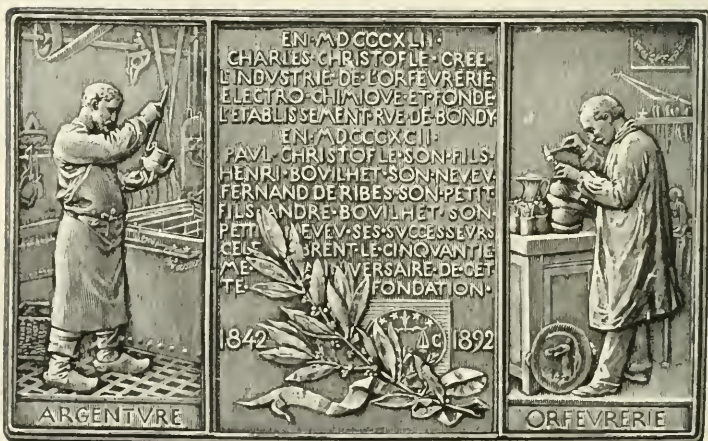 EN·MDCCCXLII·
CHARLES·CHRISTOFLE·CREE·
L'INDVSTRIE·DE·L'ORFEVRERIE·
ELECTRO·CHIMIQVE·ET·FONDE
L'ETABLISSEMENT·RVE·DE·BONDY
EN·MDCCCXCII·
PAVL·CHRISTOFLE·SON·FILS·
HENRI·BOVILHET·SON·NEVEV·
FERNAND·DE·RIBES·SON·PETIT
FILS·ANDRE·BOVILHET·SON·
PETIT NEVEV·SES·SVCCESSEVRS
CELE BRENT·LE·CINQVANTIE
ME· ANNIVERSAIRE·DE·CET
TE· FONDATION·
1842 C 1892
ARGENTVRE
ORFEVRERIE